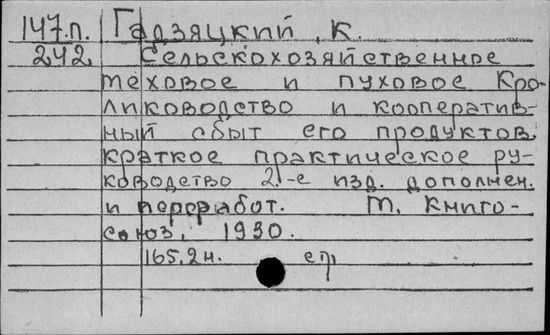 147.П. Гадзяцкий, К.
242 Сельскохозяйственное
меховое и пуховое кро-
лиководство и кооператив-
ный сбыт его продуктов.
Краткое практическое ру-
ководство 2.-е изд. дополнен.
и переработ. М. Книго-
союз, 1930.
165.2н. ст